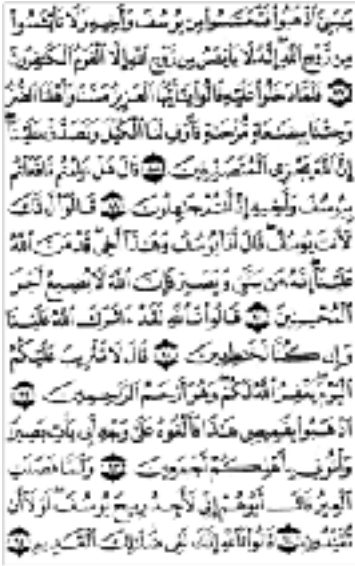 يَـٰبَنِىَّ ٱذْهَبُوا۟ فَتَحَسَّسُوا۟ مِن يُوسُفَ وَأَخِيهِ وَلَا تَا۟يْـَٔسُوا۟
مِن رَّوْحِ ٱللَّهِ إِنَّهُۥ لَا يَا۟يْـَٔسُ مِن رَّوْحِ ٱللَّهِ إِلَّا ٱلْقَوْمُ ٱلْكَـٰفِرُونَ
٨٧ فَلَمَّا دَخَلُوا۟ عَلَيْهِ قَالُوا۟ يَـٰٓأَيُّهَا ٱلْعَزِيزُ مَسَّنَا وَأَهْلَنَا ٱلضُّرُّ
وَجِئْنَا بِبِضَـٰعَةٍ مُّزْجَىٰةٍ فَأَوْفِ لَنَا ٱلْكَيْلَ وَتَصَدَّقْ عَلَيْنَآ
إِنَّ ٱللَّهَ يَجْزِى ٱلْمُتَصَدِّقِينَ ٨٨ قَالَ هَلْ عَلِمْتُم مَّا فَعَلْتُم
بِيُوسُفَ وَأَخِيهِ إِذْ أَنتُمْ جَـٰهِلُونَ ٨٩ قَالُوٓا۟ أَءِنَّكَ
لَأَنتَ يُوسُفُ قَالَ أَنَا۠ يُوسُفُ وَهَـٰذَآ أَخِى قَدْ مَنَّ ٱللَّهُ
عَلَيْنَآ إِنَّهُۥ مَن يَتَّقِ وَيَصْبِرْ فَإِنَّ ٱللَّهَ لَا يُضِيعُ أَجْرَ
ٱلْمُحْسِنِينَ ٩٠ قَالُوا۟ تَٱللَّهِ لَقَدْ ءَاثَرَكَ ٱللَّهُ عَلَيْنَا
وَإِن كُنَّا لَخَـٰطِـِٔينَ ٩١ قَالَ لَا تَثْرِيبَ عَلَيْكُمُ
ٱلْيَوْمَ يَغْفِرُ ٱللَّهُ لَكُمْ وَهُوَ أَرْحَمُ ٱلرَّٰحِمِينَ ٩٢
ٱذْهَبُوا۟ بِقَمِيصِى هَـٰذَا فَأَلْقُوهُ عَلَىٰ وَجْهِ أَبِى يَأْتِ بَصِيرًا
وَأْتُونِى بِأَهْلِكُمْ أَجْمَعِينَ ٩٣ وَلَمَّا فَصَلَتِ
ٱلْعِيرُ قَالَ أَبُوهُمْ إِنِّى لَأَجِدُ رِيحَ يُوسُفَ لَوْلَآ أَن
تُفَنِّدُونِ ٩٤ قَالُوا۟ تَٱللَّهِ إِنَّكَ لَفِى ضَلَـٰلِكَ ٱلْقَدِيمِ ٩٥